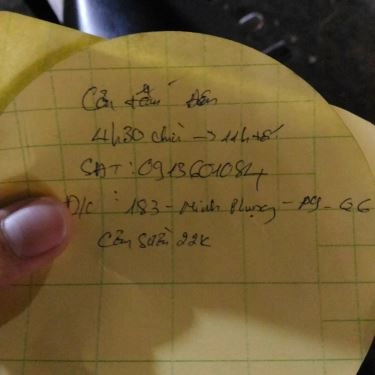 Cần tấm đêm
4h30 chiều → 11h tối
SĐT: 0913601084
Đ/c: 183 - Minh Phụng - P9 - Q6
Cơm sườn 22K